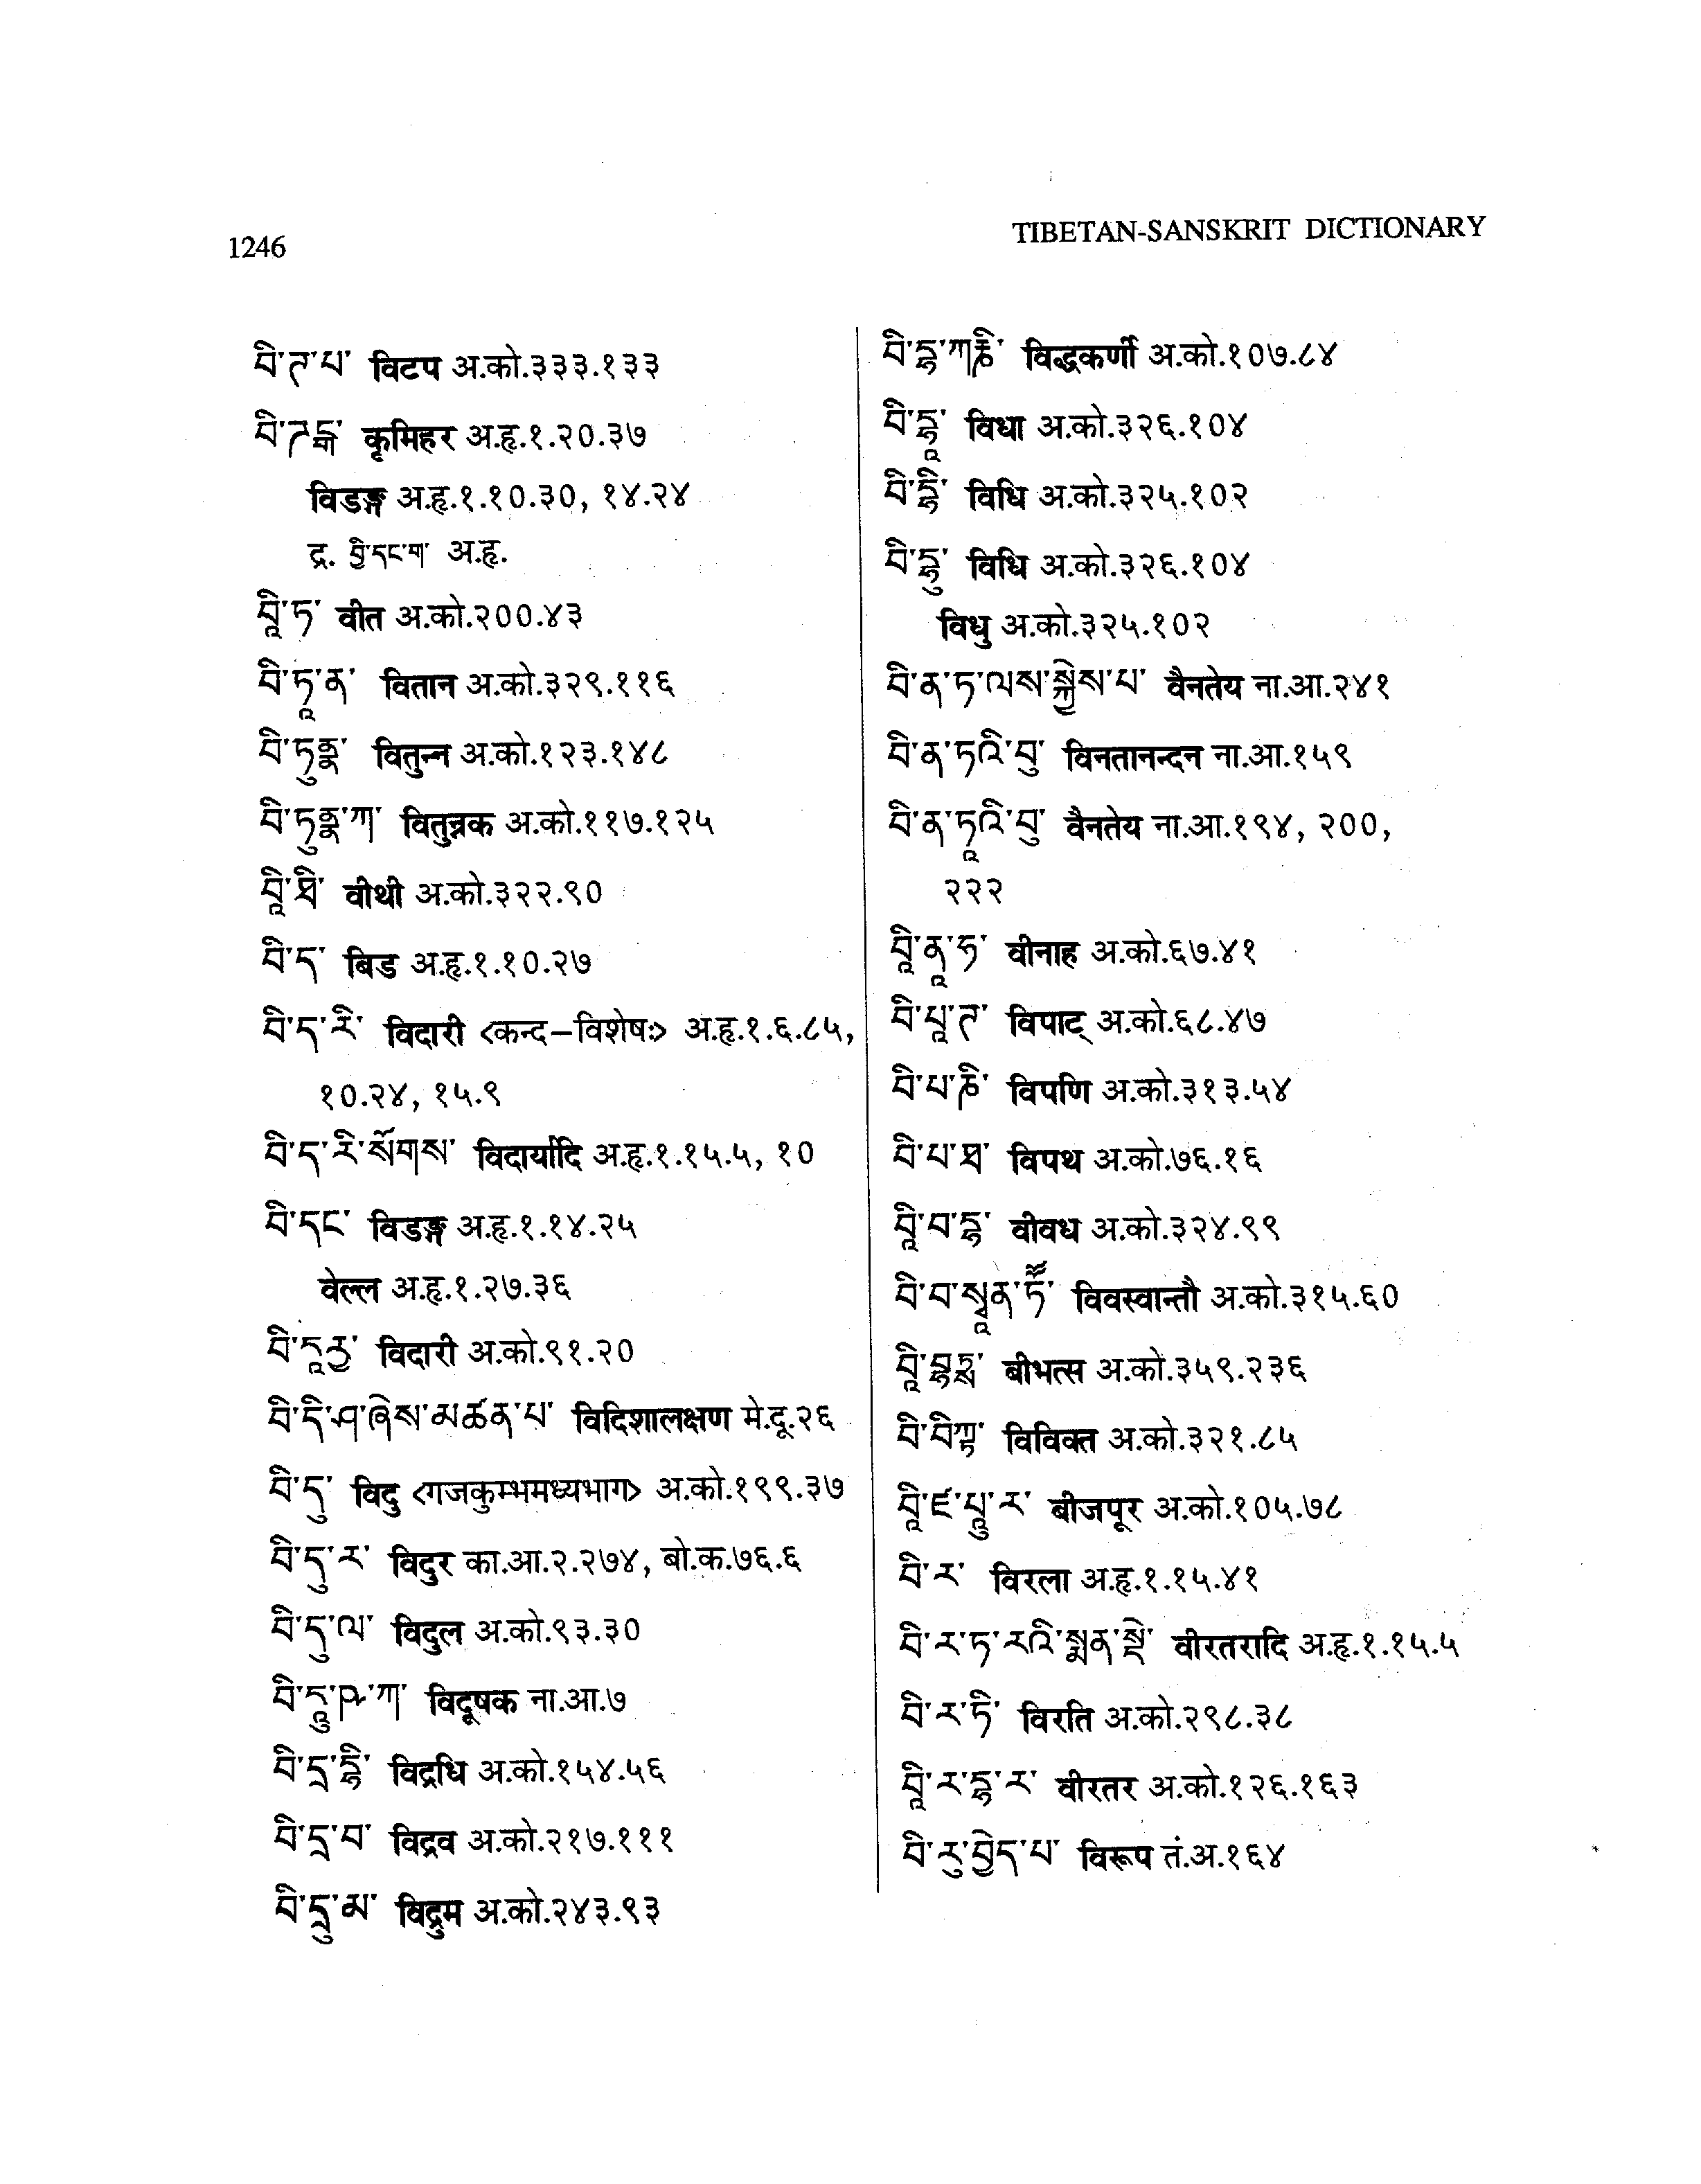 1246
TIBETAN-SANSKRIT DICTIONARY
བི་ཊ་པ་ विटप अ.को.३३३.१३३
བི་ཌངྒ་ कृमिहर अ.हृ.१.२०.३७
विडङ्ग अ.हृ.१.१०.३०, १४.२४
द्र. བྱི་དང་ག་ अ.हृ.
བཱི་ཏ་ वीत अ.को.२००.४३
བི་ཏཱ་ན་ वितान अ.को.३२९.११६
བི་ཏུནྣ་ वितुन्न अ.को.१२३.१४८
བི་ཏུནྣ་ཀ་ वितुन्नक अ.को.११७.१२५
བཱི་ཐི་ वीथी अ.को.३२२.९०
བི་ད་ बिड अ.हृ.१.१०.२७
བི་ད་རི་ विदारी <कन्द-विशेषः> अ.हृ.१.६.८५,
१०.२४, १५.९
བི་ད་རི་སོགས་ विदार्यादि अ.हृ.१.१५.५, १०
བི་དང་ विडङ्ग अ.हृ.१.१४.२५
वेल्ल अ.हृ.१.२७.३६
བི་དཱ་རྱ་ विदारी अ.को.९१.२०
བི་དི་ཤ་ཞེས་མཚན་པ་ विदिशालक्षण मे.दू.२६
བི་དུ་ विदु <गजकुम्भमध्यभाग> अ.को.१९९.३७
བི་དུ་ར་ विदुर का.आ.२.२७४, बो.क.७६.६
བི་དུ་ལ་ विदुल अ.को.९३.३०
བི་དཱུ་ཥ་ཀ་ विदूषक ना.आ.७
བི་དྲ་དྷི་ विद्रधि अ.को.१५४.५६
བི་དྲ་བ་ विद्रव अ.को.२१७.१११
བི་དྲུ་མ་ विद्रुम अ.को.२४३.९३
བི་དྷ་ཀརྞི་ विद्धकर्णी अ.को.१०७.८४
བི་དྷཱ་ विधा अ.को.३२६.१०४
བི་དྷི་ विधि अ.को.३२५.१०२
བི་དྷུ་ विधि अ.को.३२६.१०४
विधु अ.को.३२५.१०२
བི་ན་ཏ་ལས་སྐྱེས་པ་ वैनतेय ना.आ.२४१
བི་ན་ཏའི་བུ་ विनतानन्दन ना.आ.१५९
བི་ན་ཏཱའི་བུ་ वैनतेय ना.आ.१९४, २००,
२२२
བཱི་ནཱ་ཧ་ वीनाह अ.को.६७.४१
བི་པཱ་ཊ་ विपाट् अ.को.६८.४७
བི་པ་ཎི་ विपणि अ.को.३१३.५४
བི་པ་ཐ་ विपथ अ.को.७६.१६
བཱི་བ་དྷ་ वीवध अ.को.३२४.९९
བི་བ་སྭཱན་ཏཽ་ विवस्वान्तौ अ.को.३१५.६०
བཱི་བྷཏྶ་ बीभत्स अ.को.३५९.२३६
བི་བིཀྟ་ विविक्त अ.को.३२१.८५
བཱི་ཛ་པཱུ་ར་ बीजपूर अ.को.१०५.७८
བི་ར་ विरला अ.हृ.१.१५.४१
བི་ར་ཏ་རའི་སྨན་སྡེ་ वीरतरादि अ.हृ.१.१५.५
བི་ར་ཏི་ विरति अ.को.२९८.३८
བཱི་ར་ཏྷ་ར་ वीरतर अ.को.१२६.१६३
བི་རུ་བྱེད་པ་ विरूप तं.अ.१६४